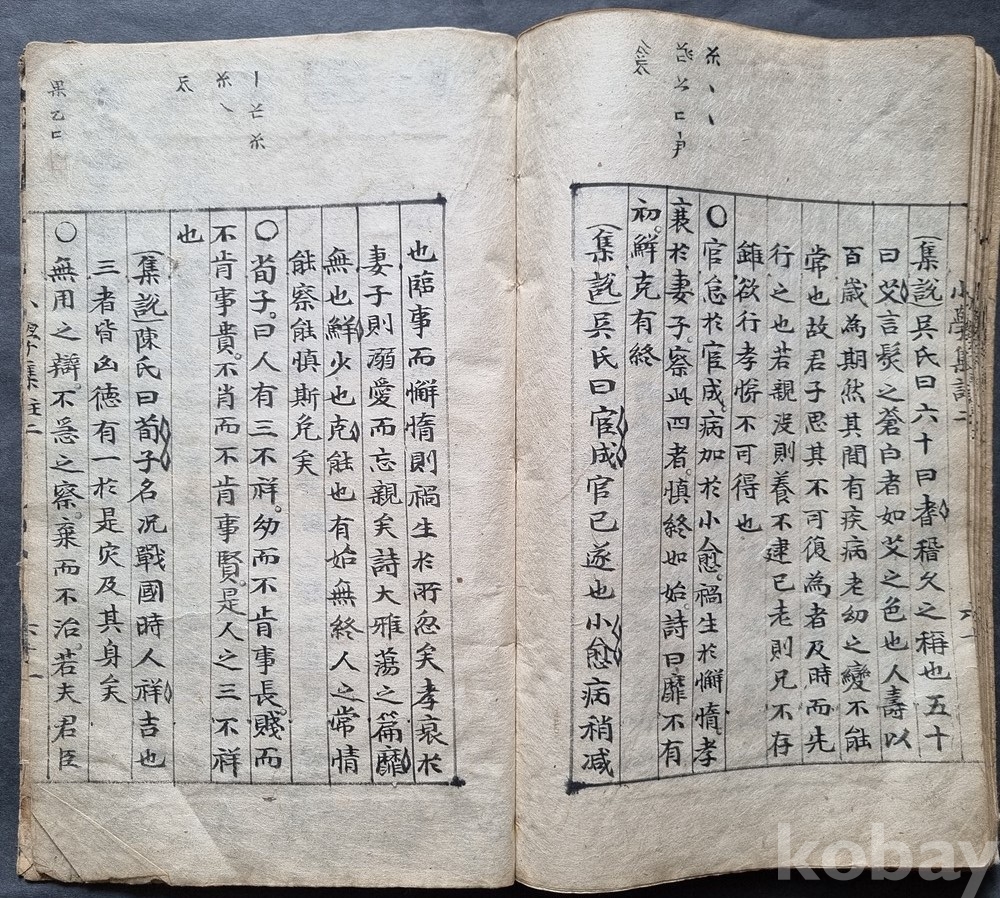 集說吳氏曰六十曰耆稽久之稱也五十
曰艾言髮之蒼白者如艾之色也人壽以
百歲為期然其間有疾病老幼之變不能
常也故君子思其不可復為者及時而先
行之也若親沒則養不逮已老則兄不存
雖欲行孝悌不可得也
○官怠於宦成。病加於小愈。禍生於懈惰。孝
衰於妻子。察此四者。慎終如始。詩曰靡不有
初。鮮克有終
集說吳氏曰宦成官已遂也小愈病稍减
也臨事而懈惰則禍生於所忽矣孝衰於
妻子則溺愛而忘親矣詩大雅蕩之篇靡
無也鮮少也克能也有始無終人之常情
能察能慎斯免矣
○荀子。曰人有三不祥。幼而不肯事長。賤而
不肯事貴。不肖而不肯事賢。是人之三不祥
也
集說陳氏曰荀子名况戰國時人祥吉也
三者皆凶德有一於是灾及其身矣
○無用之辯。不急之察。棄而不治。若夫君臣
小學集註二
kobay